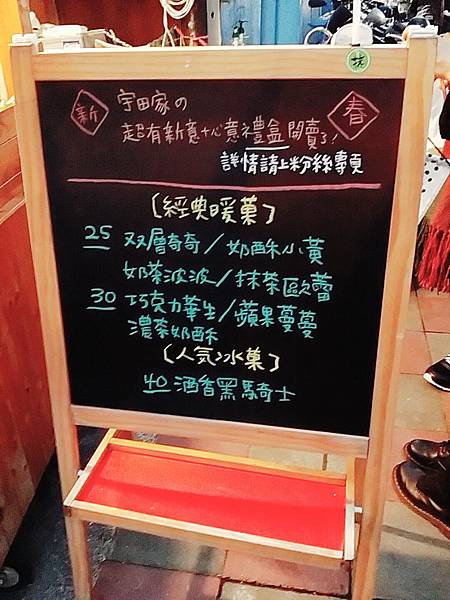 新 宇田家の 春
超有新意+心意禮盒開賣了!
詳情請上粉絲專頁
〔經典暖菓〕
25 双層奇奇/奶酥小黃
奶茶波波/抹茶歐蕾
30 巧克力華生/蘋果蔓蔓
濃茶奶酥
〔人気冰菓〕
40 酒香黑騎士